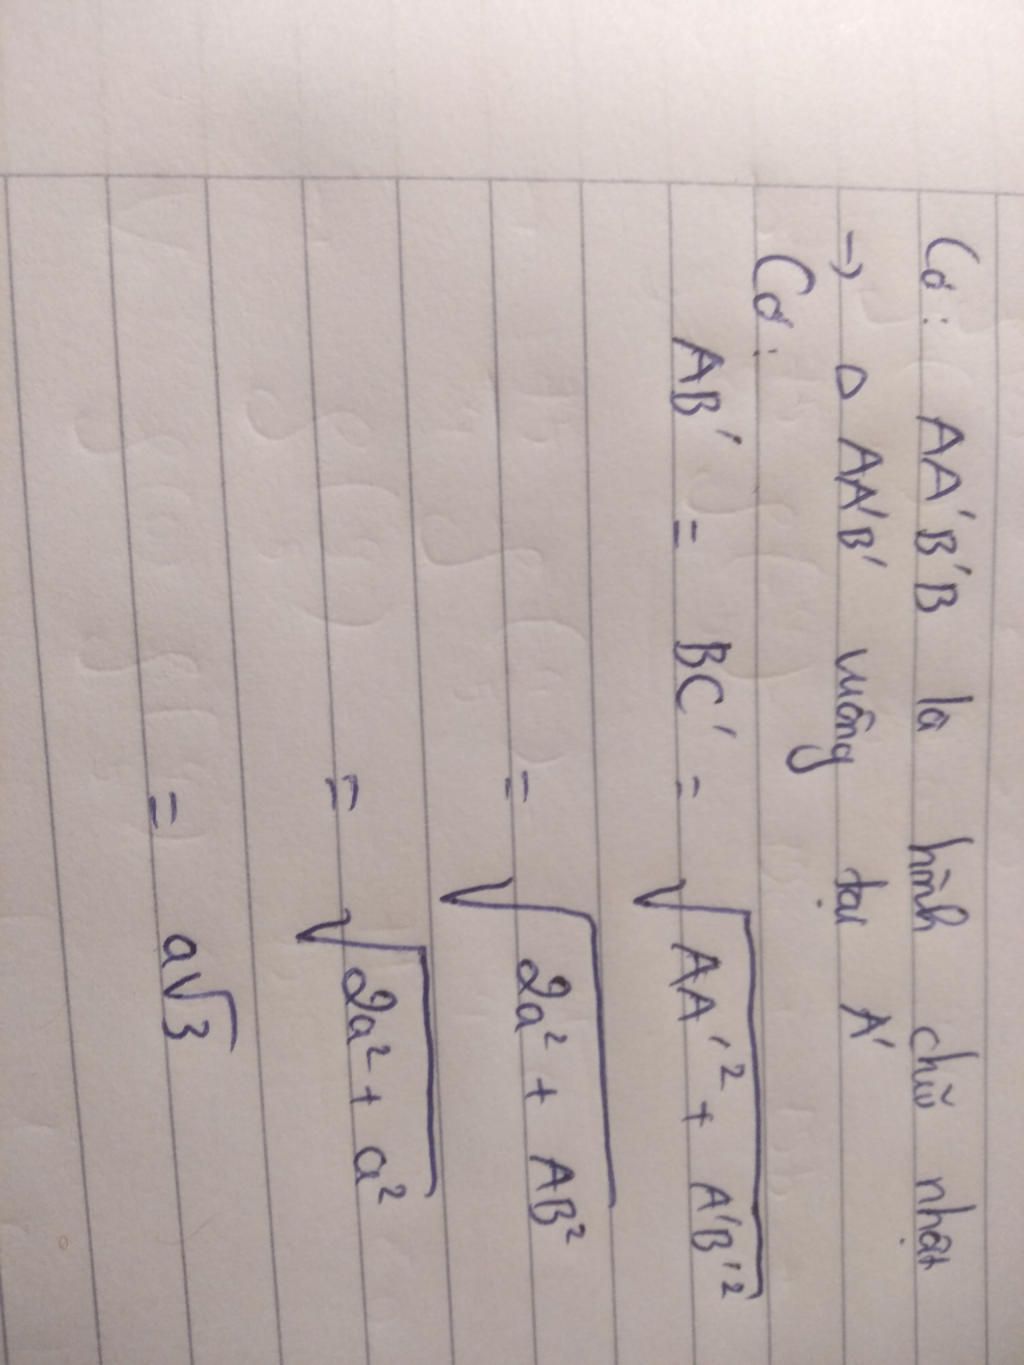 Có: AA'B'B là hình chữ nhật
→ △ AA'B' vuông tại A'
Có:
AB' = BC' = √(AA'² + A'B'²)
= √(2a² + AB²)
= √(2a² + a²)
= a√3